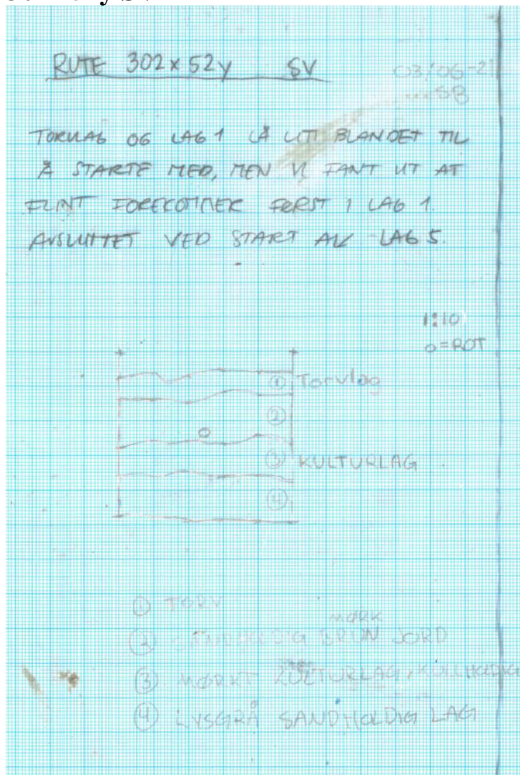 RUTE 302x52y SV
03/06-21
SB
TORVLAG OG LAG 1 LÅ LITT BLANDET TIL
Å STARTE MED, MEN VI FANT UT AT
FLINT FOREKOMMER FØRST I LAG 1.
AVSLUTTET VED START AV LAG 5.
1:10
o=ROT
① Torvlag
②
③ KULTURLAG
④
① TORV
MØRK
② BRUN JORD
③ MØRKT KULTURLAG, KULLHOLDIG
④ LYSGRÅ SANDHOLDIG LAG